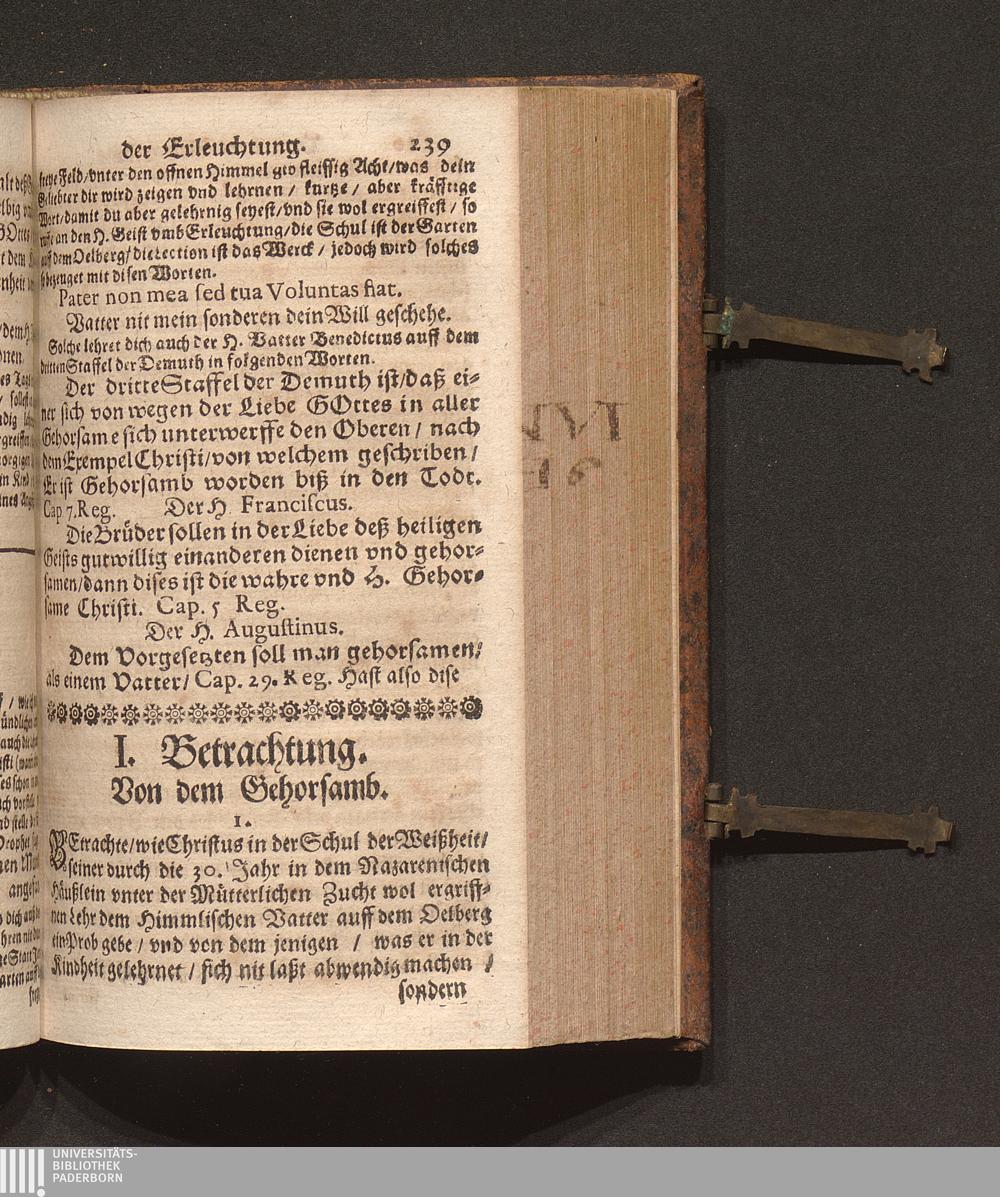 der Erleuchtung. 239
freye Feld/vnter den offnen Himmel gib fleissig Acht/was dein
Geliebter dir wird zeigen vnd lehrnen / kurtze / aber kräfftige
Wort/damit du aber gelehrnig seyest/vnd sie wol ergreiffest / so
ruffe an den H. Geist vmb Erleuchtung/die Schul ist der Garten
auff dem Oelberg/die Lection ist das Werck / jedoch wird solches
bezeuget mit disen Worten.
Pater non mea sed tua Voluntas fiat.
Vatter nit mein sonderen dein Will geschehe.
Solche lehret dich auch der H. Vatter Benedictus auff dem
dritten Staffel der Demuth in folgenden Worten.
Der dritte Staffel der Demuth ist/daß ei-
ner sich von wegen der Liebe GOttes in aller
Gehorsame sich unterwerffe den Oberen / nach
dem Exempel Christi/von welchem geschriben /
Er ist Gehorsamb worden biß in den Todt.
Cap. 7. Reg. Der H Franciscus.
Die Brüder sollen in der Liebe deß heiligen
Geists gutwillig einanderen dienen vnd gehor-
samen/dann dises ist die wahre vnd H. Gehor-
same Christi. Cap. 5 Reg.
Der H. Augustinus.
Dem Vorgesetzten soll man gehorsamen/
als einem Vatter/ Cap. 29. Reg. Hast also dise
I. Betrachtung.
Von dem Gehorsamb.
1.
BEtrachte/wie Christus in der Schul der Weißheit/
seiner durch die 30. Jahr in dem Nazarenischen
Häußlein vnter der Mütterlichen Zucht wol ergriff-
nen Lehr dem Himmlischen Vatter auff dem Oelberg
ein Prob gebe / vnd von dem jenigen / was er in der
Kindheit gelehrnet / sich nit laßt abwendig machen /
sondern
UNIVERSITÄTS-
BIBLIOTHEK
PADERBORN